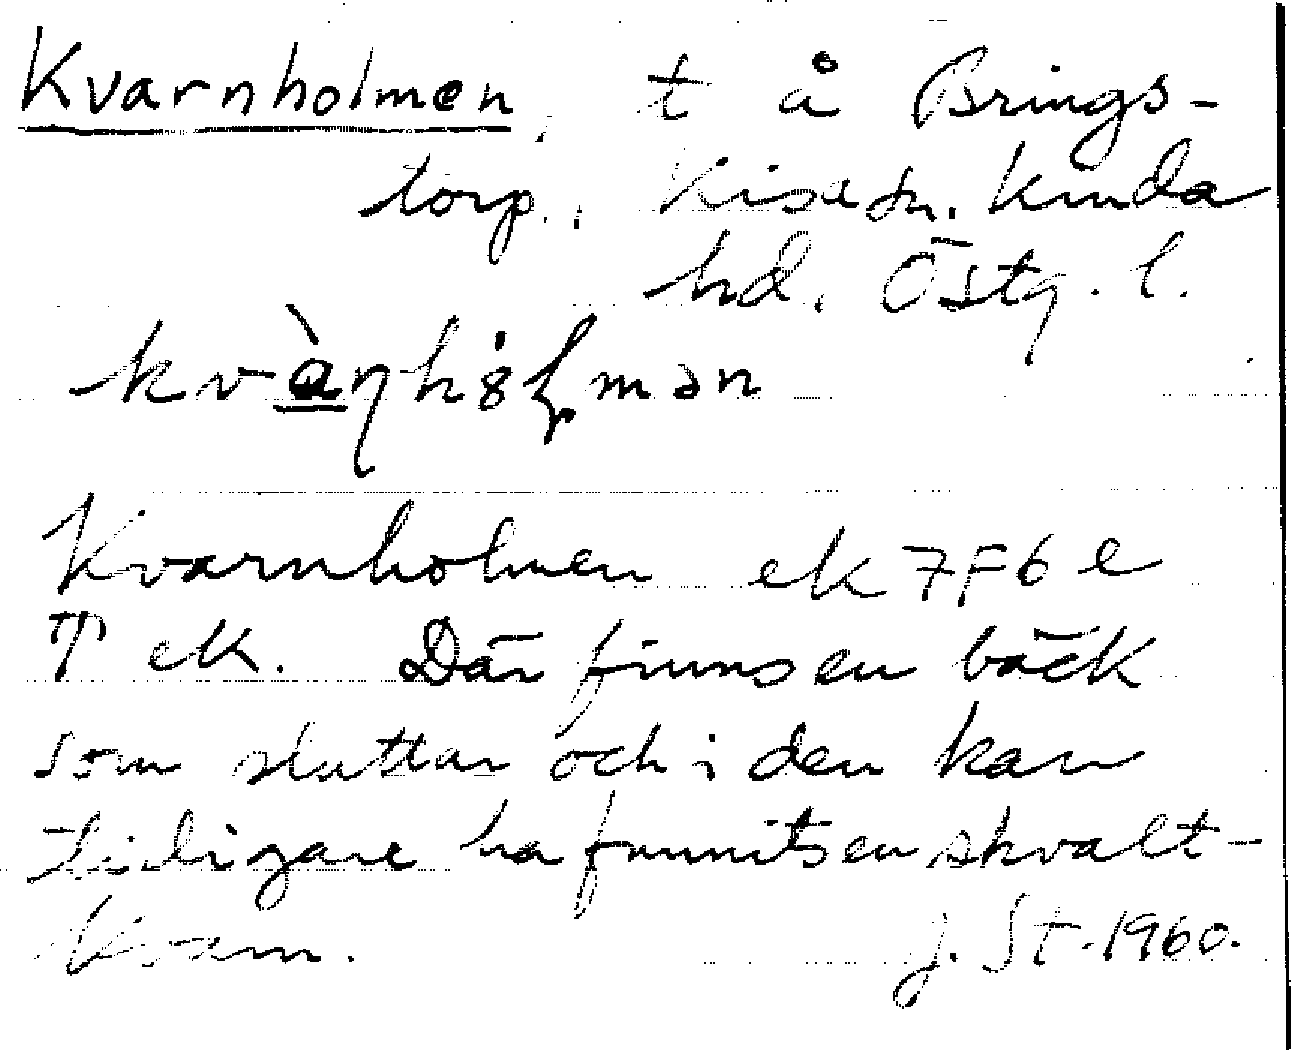 Kvarnholmen, t å Brings-
torp, Kisa sn. Kinda
hd, Östg. l.
kvàɳhȯlmən
Kvarnholmen ek 7F6e
ek. Där finns en bäck
som sluttar och i den kan
tidigare ha funnits en skvalt-
kvarn. J. St. 1960.